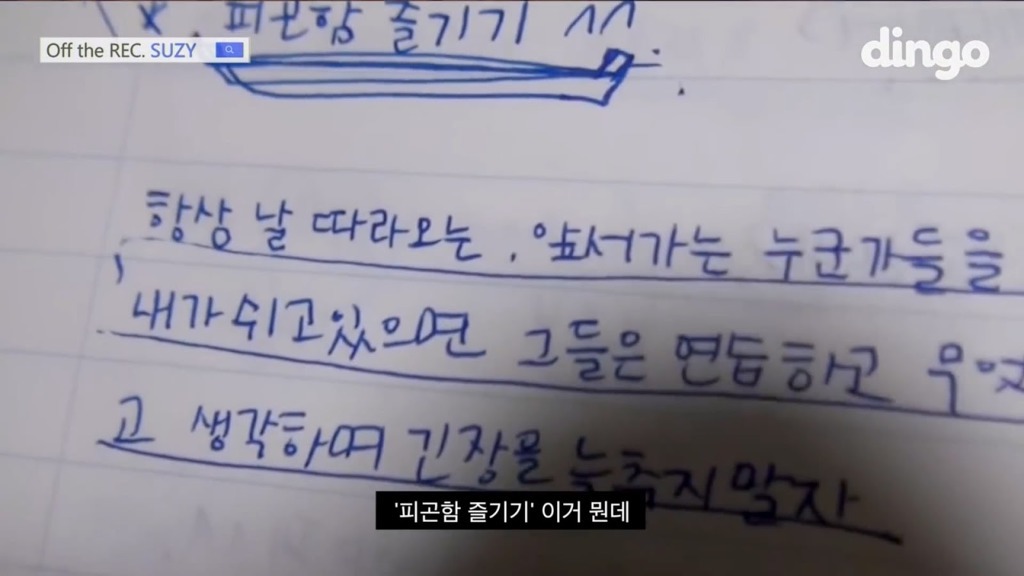 * 피곤함 즐기기 ^^
Off the REC. SUZY
dingo
항상 날 따라오는, 앞서가는 누군가들을
내가 쉬고있으면 그들은 연습하고
고 생각하며 긴장을 늦추지말자
'피곤함 즐기기' 이거 뭔데